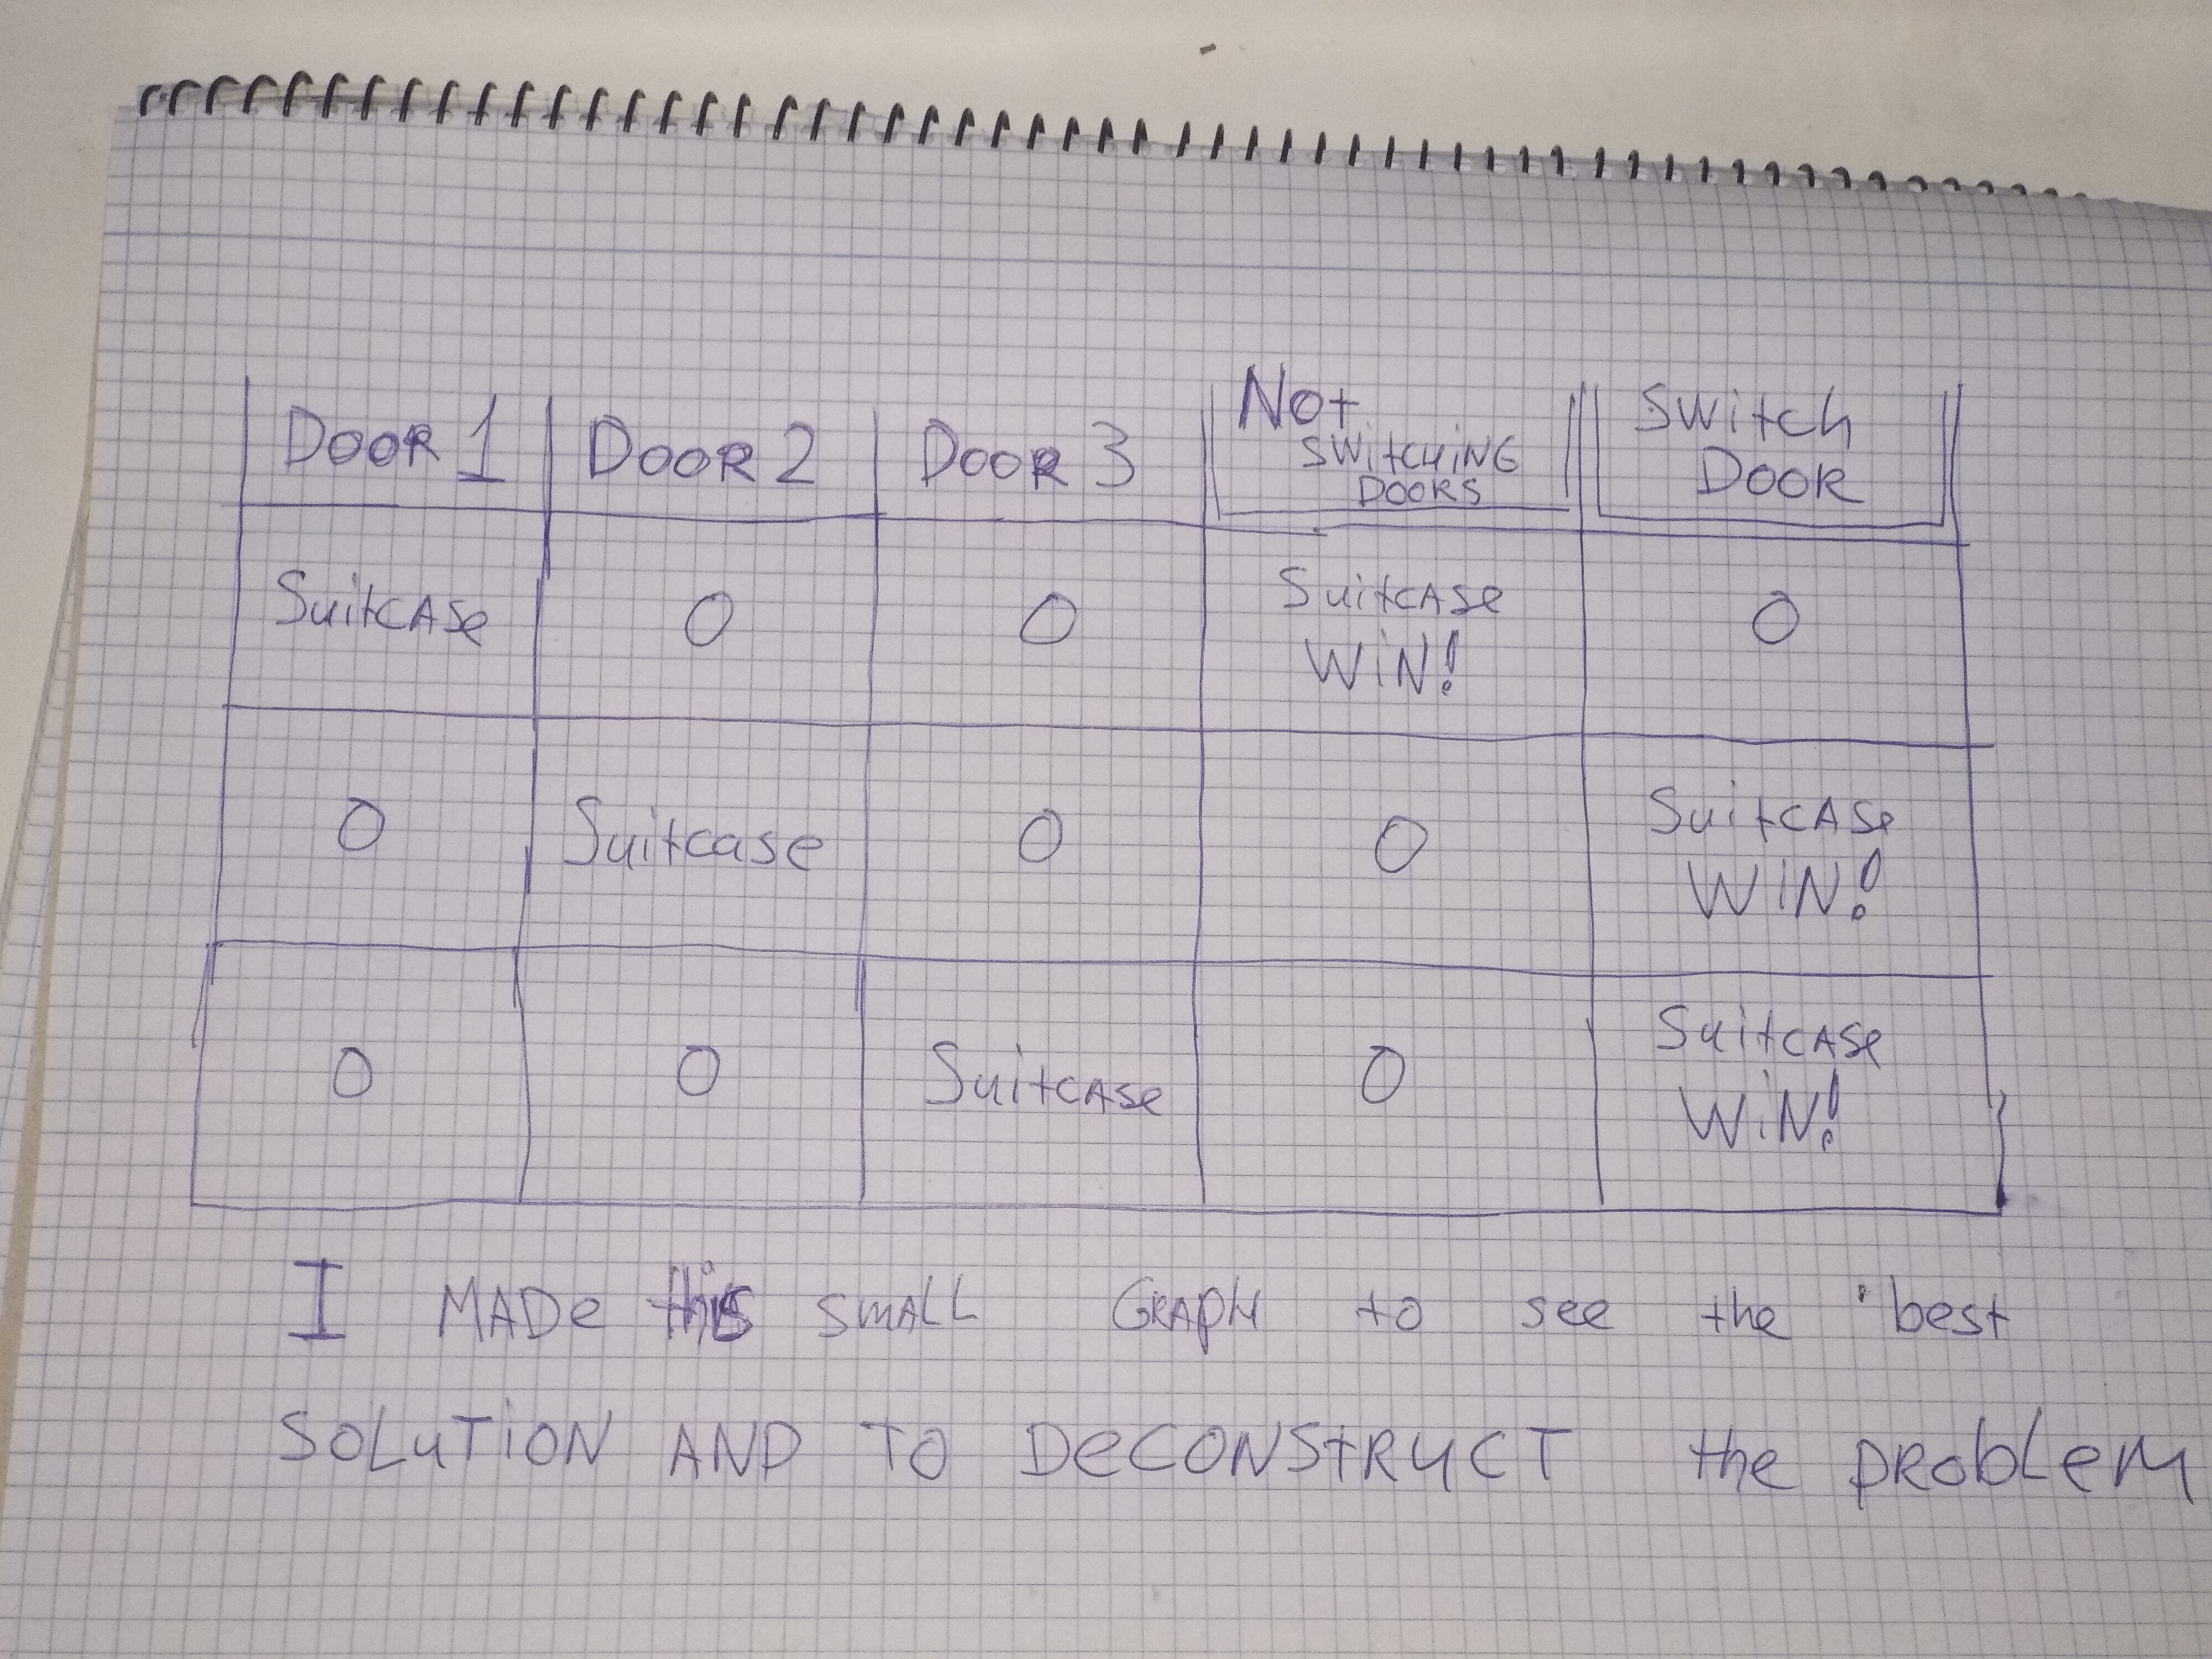 DOOR 1 DOOR 2 DOOR 3 Not SWitCHiNG DOORS SWitch DOOR
SuitCASe O O SuitCASe WiN! O
O Suitcase O O SuitCASe WiN!
O O SuitCASe O SuitCASe WiN!
I MADe this SMALL GRApH to see the best
SOLuTiON AND TO DeCONStRuCT the pRObLeM